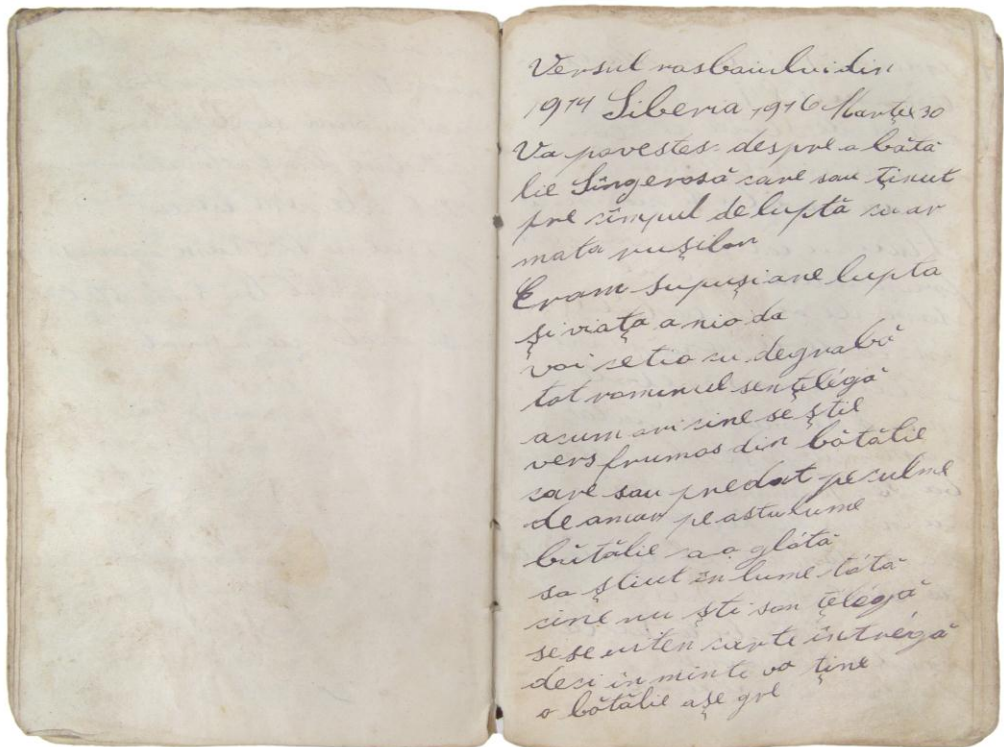 Versul rasbaiului din
1914 Siberia 1916 Marte 30
Va povestes despre a bătă
lie Sîngerosă care sau ţinut
pre cîmpul de luptă cu ar
mata ruşilor
Eram supuşi a ne lupta
şi viaţa a nio da
voi cetio cu degrabă
tot rominul senţelégă
acum ori cine se ştie
vers frumos din bătălie
care sau predat pe culme
de amar pe astă lume
bătălie ca o glótă
sa ştiut în lume tótă
cine nu şti san ţelégă
se se uiten carte întrégă
deci in minte va ţine
o bătălie aşe gre